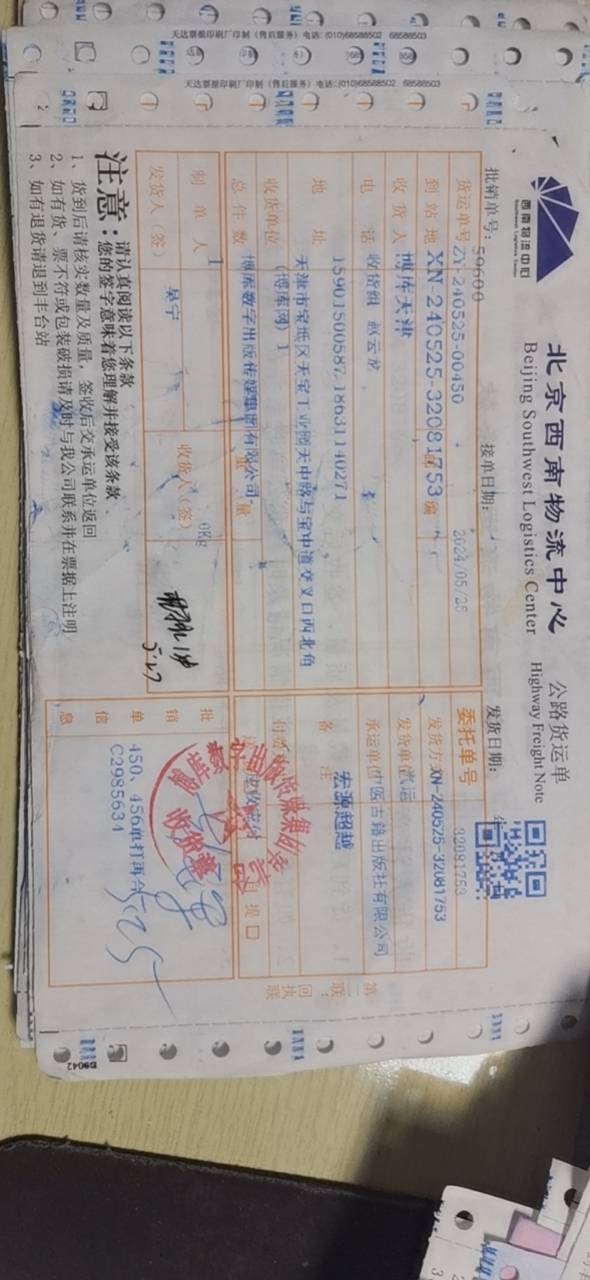 天达票据印刷厂印制（售后服务）电话:(010)68588502 68588503
天达票据印刷厂印制（售后服务）电话:(010)68588502 68588503
西南物流中心
北京西南物流中心
Beijing Southwest Logistics Center
公路货运单
Highway Freight Note
批销单号: 59600
接单日期:
发货日期:
货运单号 ZY-240525-00450
2024/05/25
委托单号 32081753
到站地 XN-240525-32081753
发货方 XN-240525-32081753
收货人 博库天津
发货单
电话 收货组 赵云龙
承运单位
古籍出版社有限公司
15901500587,18631140271
备注
宏源超越
地址 天津市宝坻区天宝工业园天中路与宝中道交叉口西北角
收货单位 (博库网) 1
博库数字出版传媒集团有限公司
总件数
量
自提 口
1
0Kg
制单人
吴宁
发货人(签)
收货人(签)
5.27
批销单信息
450、456单打再合
C2985634
5/25
第二联: 回执联
注意:
请认真阅读以下条款
您的签字意味着您理解并接受该条款
1、货到后请核实数量及质量，签收后交承运单位返回
2、如有货、票不符或包装破损请及时与我公司联系并在票据上注明
3、如有退货请退到丰台站